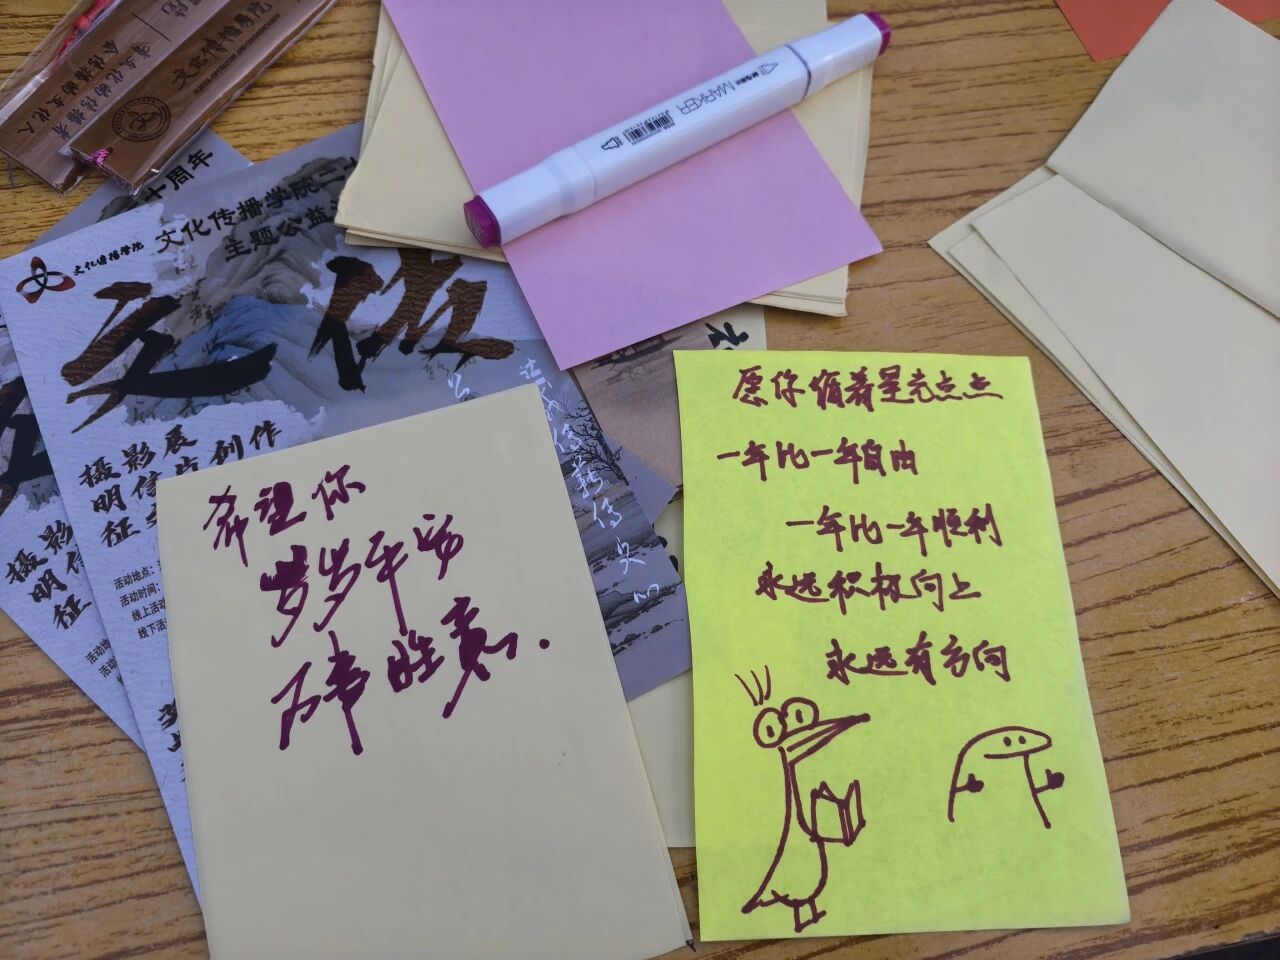 文化传播学院
十周年
文化传播学院二十
主题公益活
文化传播学院
文传
摄影展
明信片创作
征
活动地点：
活动时间：
线上活动
线下活
摄影
明信
征
活动地
活动时
MARKER
希望你
岁岁平安
万事胜意.
愿你循着星光点点
一年比一年自由
一年比一年顺利
永远积极向上
永远有方向